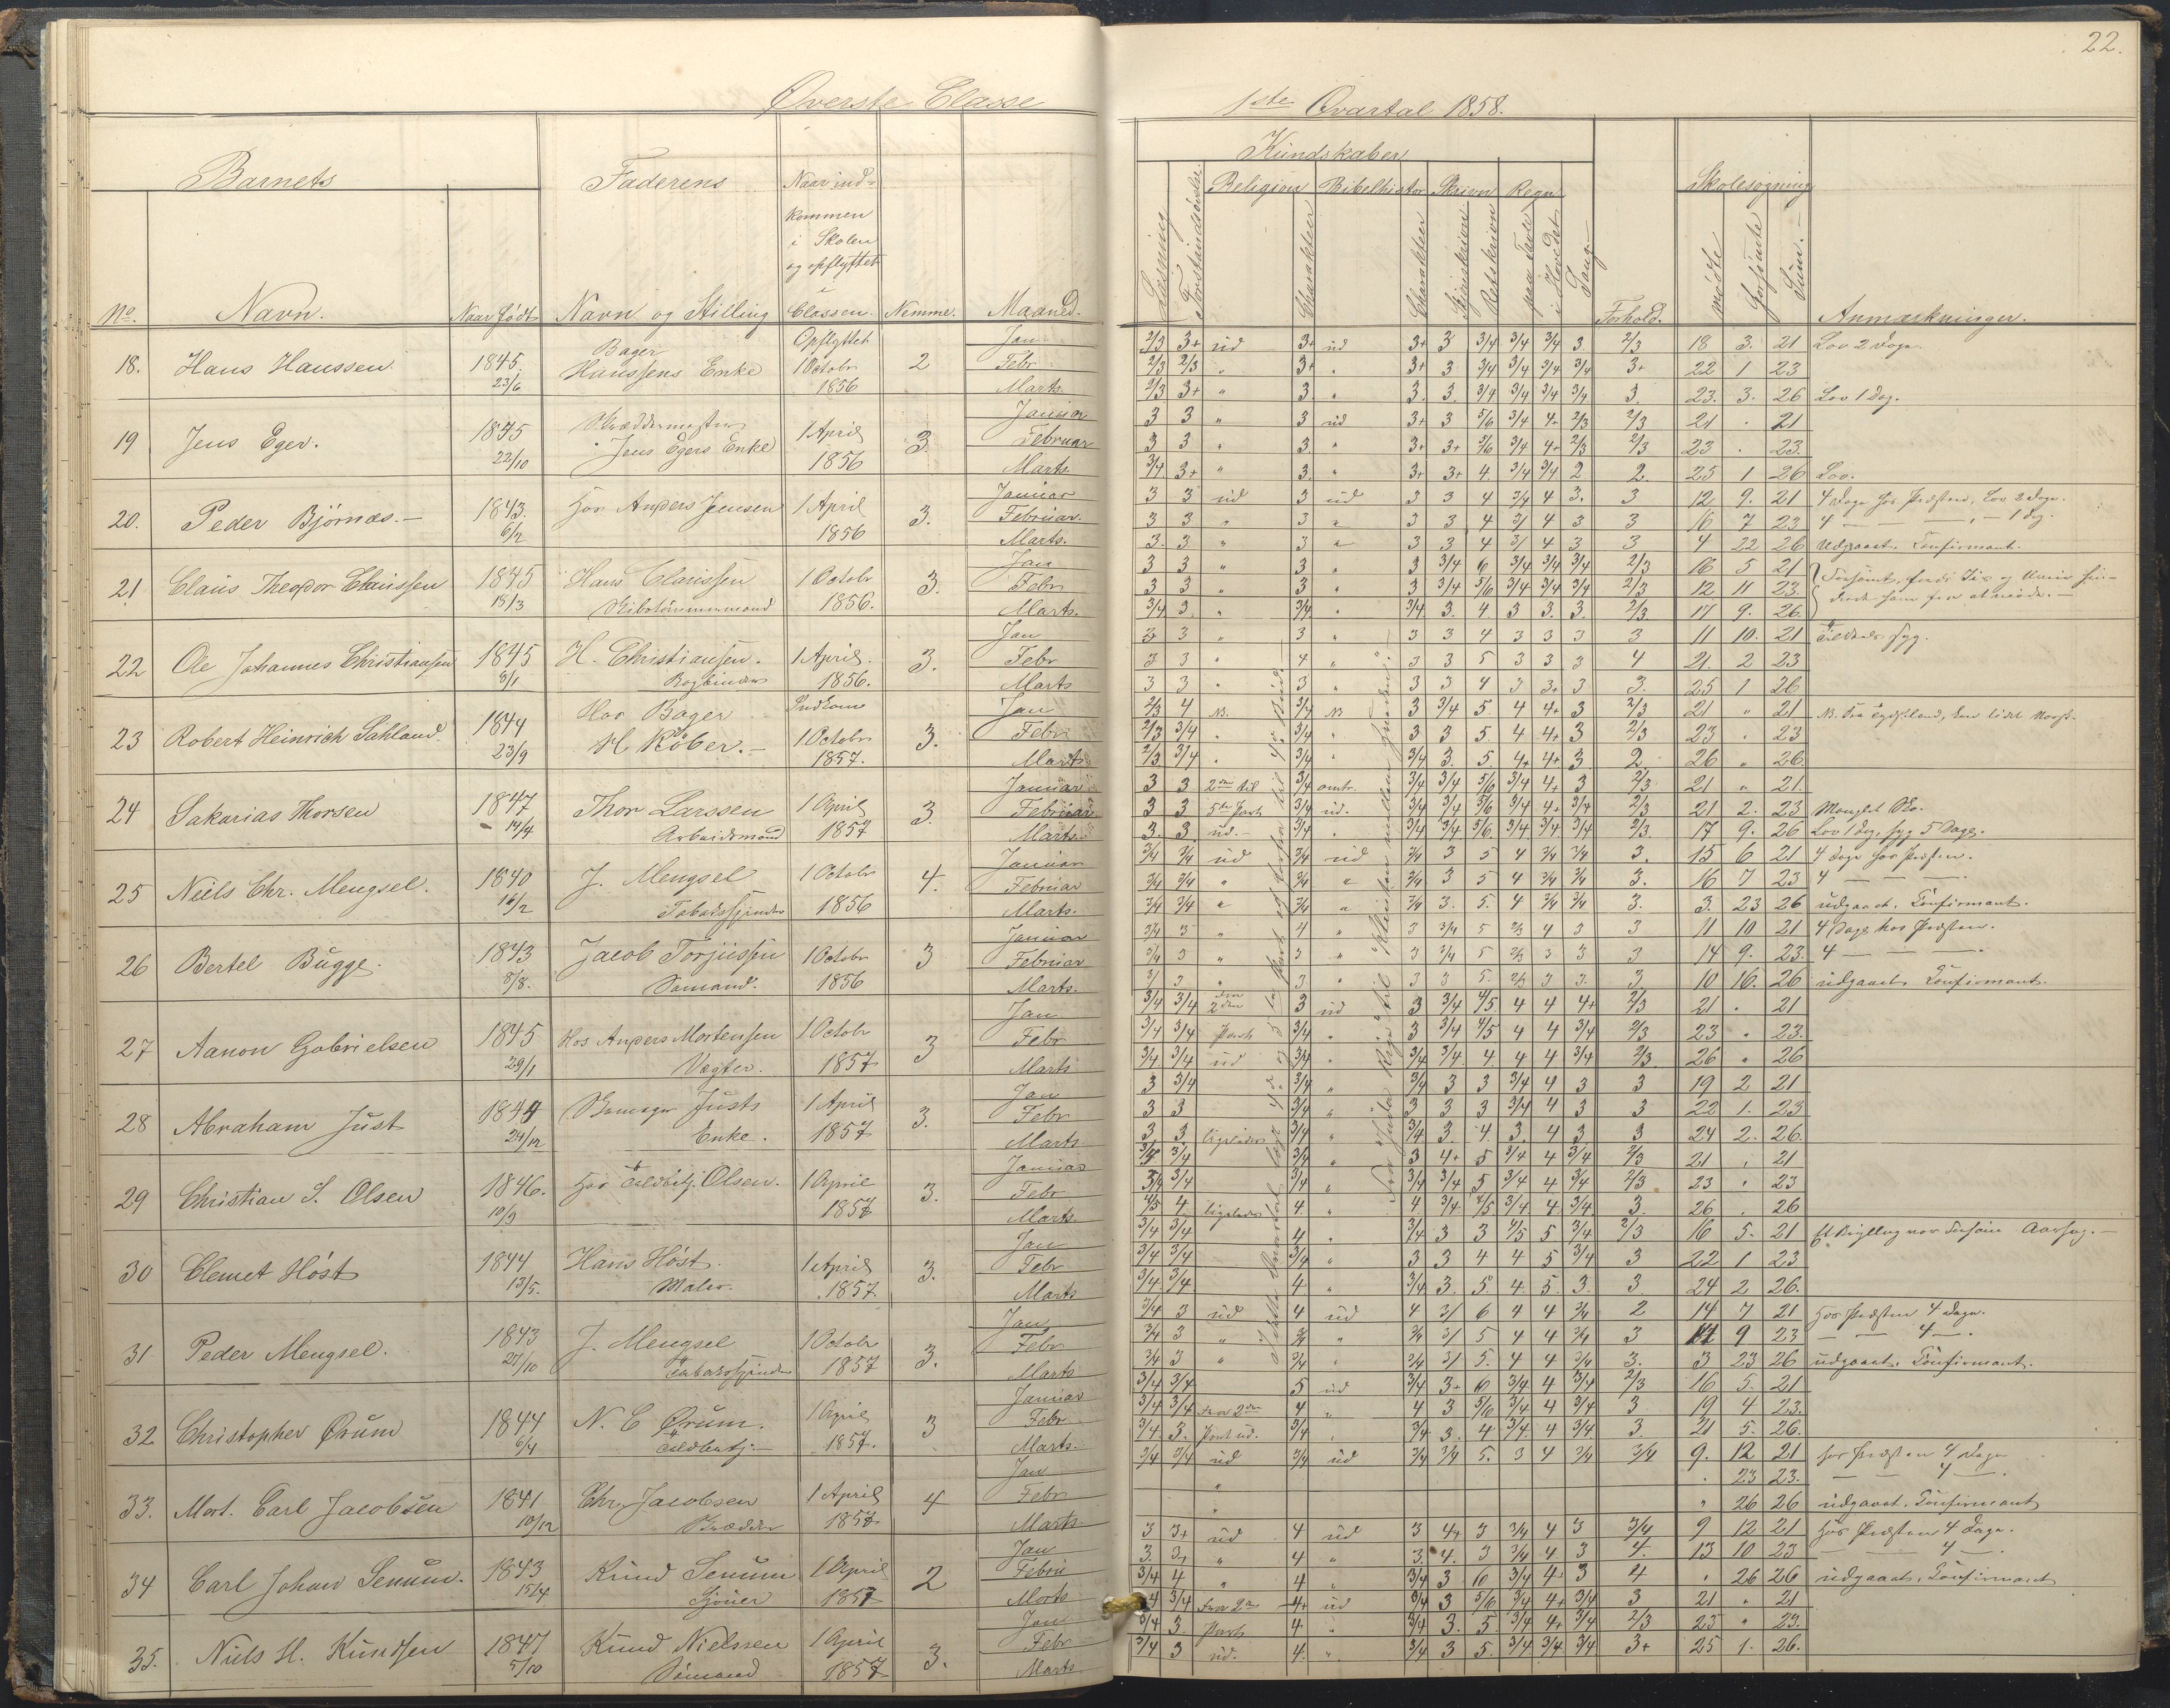 22.
Øverste Classe
1ste Qvartal 1858.
Barnets
Faderens
Naar ind-
kommen
i Skolen
og opflyttet
i
Classen.
No.
Navn.
Naar født
Navn og Stilling
Nemme.
Maaned.
Kundskaber
Læsning
Forstandsøvelse
Religion
Charakteer
Bibelhistor
Charakteer
Skrivn
Skjønskrivn
Retskrivn
Regn
paa Tavle
i Hovedet
Sang
Forhold.
Skolesøgning
mødte
forsømte
Sum.
Anmærkninger.
18. Hans Hanssen 1845. 23/6 Bager Hanssens Enke Opflyttet 1 Octobr 1856 2
Jan 2/3 3+ ud 3+ ud 3+ 3 3/4 3/4 3/4 3 2/3 18 3. 21 Lov 2 Dage
Febr 2/3 2/3 " 3+ " 3+ 3 3/4 3/4 3/4 3/4 3+ 22 1 23
Marts 2/3 3+ " 3 " 3. 3. 3/4 3/4 3/4 3/4 3. 23. 3. 26 Lov 1 Dag.
19 Jens Eger. 1845 22/10 Skræddermester Jens Egers Enke 1 April 1856 3.
Januar 3 3 " 3 ud 3+ 3 5/6 3/4 4+ 2/3 2/3 21 . 21
Februar 3 3 " 3. " 3+ 3+ 5/6 3/4 4+ 2/3 2/3 23 . 23.
Marts. 3/4 3+ " 3. " 3+ 3+ 4. 3/4 3/4 2 2. 25 1 26 Lov.
20. Peder Bjørnæs.- 1843. 6/2 Hos Anders Jensen 1 April 1856 3.
Januar 3 3 ud 3 ud 3 3 4 3/4 4 3. 3 12 9. 21 4 Dage hos Præsten, Lov 2 Dage.
Februar. 3 3 " 3 " 3 3 4 3/ 4 3 3 16 7 23 4 — — — 1 Dag.
Marts. 3. 3 " 3 " 3 3 4 3/ 4 3 3 4 22 26 Udgaaet. Confirmant.
21 Claus Theodor Claussen 1845 18/3 Hans Claussen Skibstømmermand 1 Octobr 1856. 3.
Jan 3 3 " 3 " 3 3/4 6 3/4 3/4 3/4 2/3 16 5 21
Febr 3 3 " 3 " 3 3/4 5/6 3/4 3/4 3/4 2/3 12 11 23.
Marts. 3/4 3. " 3/4 " 3/4 3. 4 3 3. 3. 2/3 17 9. 26.
22 Ole Johannes Christiansen 1845 8/1 H. Christiansen. Bogbinder 1 April. 1856. 3.
Jan 3 3 " 3 " 3 3 4 3 3 3 3 11 10. 21 syg.
Febr 3 3 " 4 " 3 3 5 3 3 3 4 21. 2 23
Marts 3 3 " 3 " 3 3 4 3 3+ 3 3. 25 1 26
23 Robert Heinrich Sahland 1844 23/9 Hos Bager H Köber.- Indkom 1 Octobr 1857. 3.
Jan 2/3 4 NB. 3/4 NB 3 3/4 5 4 4+ 3 2/3 21 " 21 NB. Fra Tydskland, kan lidet Norsk.
Febr 2/3 3/4 . 3/4 " 3 3 5. 4 4+ 3 2/3 23 . 23
Marts 2/3 3/4 . 3/4 " 3/4 3. 5. 4+ 4+ 3 2. 26 " 26.
24 Sakarias Thorsen 1847 14/4 Thor Larssen Arbeidsmand 1 April 1857 3.
Januar 3 3 2den til 3/4 omtr. 3/4 3/4 5/6 3/4 4+ 3 2/3 21 " 21.
Februar 3 3 5te Part 3/4 ud. 3/4 3/4 5/6 3/4 4+ 3/4 2/3 21 2. 23 Manglet Sko.
Marts. 3. 3 ud.- 3/4 . 3/4 3/4 5/6. 3/4 3/4 3/4 2/3. 17 9. 26 Lov 1 Dag, syg 5 Dage.
25 Niels Chr. Mengsel. 1840 16/2 J. Mengsel Tobaksspinder 1 Octobr 1856 4.
Januar 3/4 3/4 ud 3/4 ud 3/4 3 5 4 3/4 3/4 3. 15 6 21 4 Dage hos Præsten.
Februar 3/4 3/4 " 3/4 " 3/4 3 5 4 3/4 3/4 3. 16 7 23 4 — — —.
Marts. 3/4 3/4 " 3/4 " 3/4 3. 5. 4 3/4 3/4 3. 3 23 26 udgaaet. Confirmant.
26 Bertel Bugge. 1843 8/8. Jacob Torjussen Sømand. 1 Octobr 1856 3
Januar 3/4 3 " 4 " 3 3/4 5 2/3 4 3 3 11 10 21 4 Dage hos Præsten.
Februar 3/4 3 " 3 " 3 3/4 5 2/3 3 3 3 14 9. 23. 4 — — —.
Marts. 3/ 3 " 3 " 3 3 5 2/3 3 3. 3. 10 16. 26 udgaaet. Confirmant.
27 Aanon Gabrielsen 1845 29/1 Hos Anders Mortensen Vægter. 1 Octobr 1857 3
Jan 3/4 3/4 Fra 2den 3 ud 3 3/4 4/5 4 4 4+ 2/3 21 . 21
Febr 3/4 3/4 Part 3/4 " 3 3/4 4/5 4 4 3/4 2/3 23 " 23.
Marts 3/4 3/4 ud 3/4 " 3/4 3/4 4. 4 4 3/4 2/3. 26 " 26
28 Abraham Just 1844 24/12 Justs Enke. 1 April 1857 3.
Jan 3 3/4 3/4 " 3/4 3 3 3/4 4 3 3 19 2 21
Febr 3 3 3/4 " 3 3 3 3/4 4 3 3 22 1. 23
Marts 3 3 ligeledes 3/4 " 3/4 3. 4. 3. 4 3 3 24 2. 26.
29 Christian S. Olsen 1846. 10/9 Hos Toldbetj. Olsen. 1 April 1857 3.
Januar 3/4 3/4 3/4 " 3 4+ 5 3/4 4 3/4 2/3 21 . 21
Febr 3/4 3/4 3/4 " 3/4 3/4 5 3/4 4 3/4 2/3 23 . 23
Marts 4/5 4 ligeledes 4. " 4. 3/4 4/5 3/4 4. 3/4 3. 26 . 26
30 Clemet Höst 1844 13/5. Hans Höst. Maler. 1 April 1857. 3.
Jan 3/4 3/4 4 . 3/4 3 3 4/5 5 3/4 2/3 16 5. 21
Febr 3/4 3/4 3/4 " 3 3 4 4 5 3/4 3 22 1 23
Marts 3/4 3/4 4 " 3/4 3. 5. 4. 5. 3. 3 24 2 26.
31 Peder Mengsel. 1843 27/10 J. Mengsel Tobaksspinder 1 Octobr 1857 3.
Jan 3/4 3 ud 4 ud 4 3/ 6 4 4 3/4 2 14 7 21 Hos Præsten 4 Dage.
Febr 3/4 3 " 3/4 " 3/4 3/ 5 4 4 3/4 3 14 9 23 — — 4 —.
Marts 3/4 3 " 3/4 " 3/4 3/ 5. 4 4 3/4 3. 3 23 26 udgaaet. Confirmant.
32 Christopher Ørum 1844 6/4 N. C Ørum. Toldbetj.- 1 April 1857. 3
Januar 3/4 3/4 5 ud 3/4 3+ 6 3/4 4 3/4 2/3 16 5. 21
Febr 3/4 3/4 Fra 2den 4 " 4 3 5/6 3/4 4 3/4 3 19 4 23.
Marts. 3/4 3. Part ud. 3/4 . 3/4 3. 4 3/4 4 3/4 3. 21 5. 26.
33. Mort. Carl Jacobsen 1841 10/12 Chr. Jacobsen Skrædder 1 April 1857 4
Jan 3/4 3/4 ud 3/4 ud 3/4 3/4 5. 3 4 3/4 3/4 9. 12 21 hos Præsten 4 Dage
Febr " . 23 23. — — 4 —.
Marts " " 26 26 udgaaet. Confirmant
34 Carl Johan Senum. 1843 15/4 Knud Senum 1 April 1857 2
Jan 3 3+ ud 4 ud 3 4+ 3 3/4 4 3 3/4 9 12 21 Hos Præsten 4 Dage.
Febru 3. 3+ " 4 " 3. 4. 3 3/4 4 3 4. 13 10 23 — — 4 —.
Marts 3/4 4 " 4 " 3/4 3 6 3/4 4+ 3 4 " 26 26 udgaaet. Confirmant
35. Niels H. Knudsen 1847 5/10 Knud Nielssen Sømand 1 April 1857 3.
Jan 3/4 Fra 2den 4+ ud 3/4 3 5/6 3/4 4+ 3/4 3 21 " 21
Febr 3/4 3 Part 4 " 3/4 3. 5. 3/4 4+ 3/4 2/3 23 " 23.
Marts 3/4 3 ud. 4. ". 3/4 3 5. 3/4 3/4 3/4 3+ 25 1. 26.